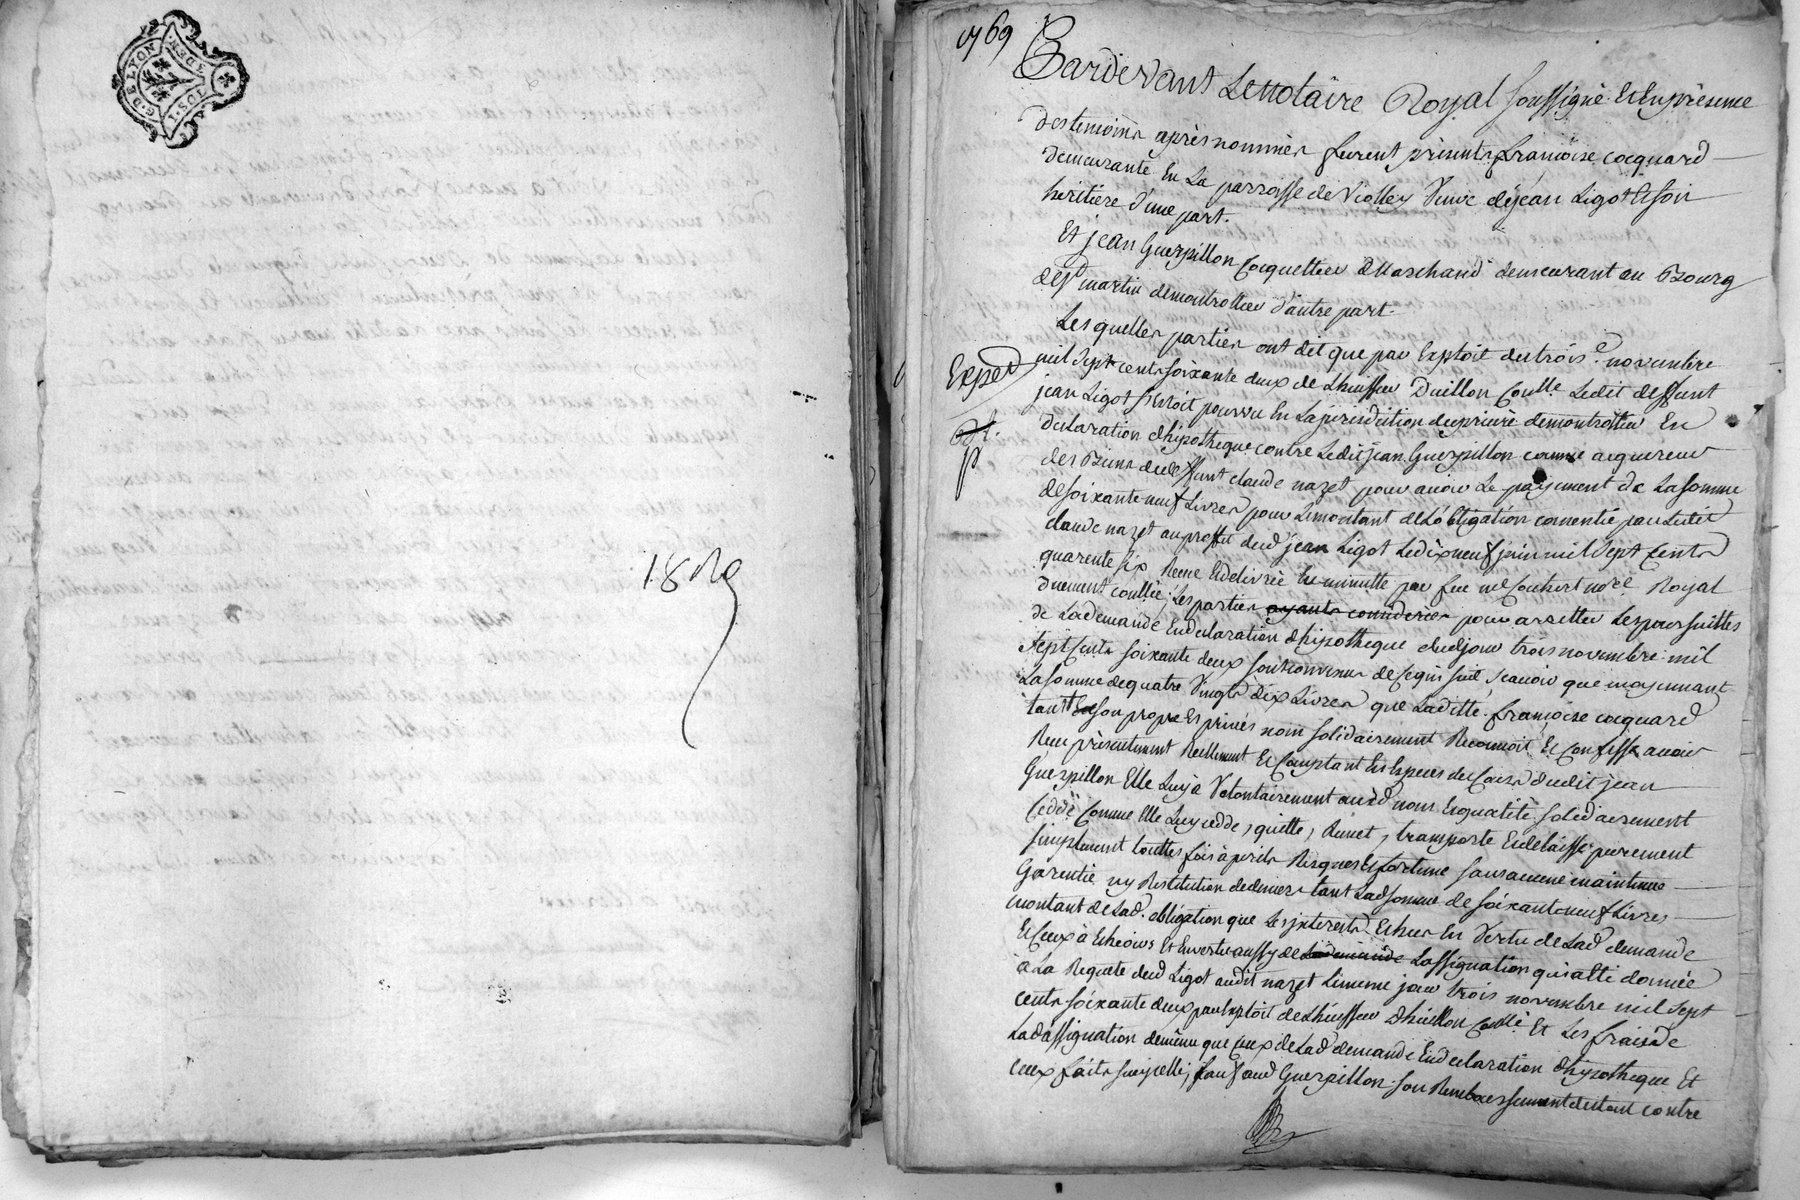 G. DE LYON
DEN.
1. SOLS
1769
Pardevant Le notaire Royal soussigné Et En présence
des temoins après nommés furent présents françoise coquard
demeurante En La parroisse de Violley Veuve de jean Ligot Et son
héritière d'une part.
Et jean Guerpillon Coquettier Marchand demeurant au Bourg
de St martin de montrottier d'autre part.
Lesquelles parties ont dit que par Exploit du trois.e novembre
mil sept cents soixante deux de Lhuissier Duillon Contlé. Ledit deffunt
Exped
jean Ligot s'Etoit pourvu En La jurisdiction du prieuré de montrottier En
déclaration d'hipotheque contre Ledit jean Guerpillon comme acquereur
p
des Biens du deffunt claude nazet pour avoir Le payement de La somme
de soixante neuf Livres pour Le montant de L'obligation consentie par Ledit
claude nazet au proffit dud jean Ligot Le dix neuf juin mil sept cents
quarente six Reçue Et delivrée En minutte par feu me no.re Royal
duement contlée; Les parties ayants considerées pour arretter Les poursuittes
de La demande En declaration d'hipotheque dud jour trois novembre mil
sept cents soixante deux sont convenus de ce qui suit sçavoir que moyennant
La somme de quatre Vingts dix Livres que Laditte françoise coquard
tant En son propre Et privés nom solidairement Reconnoit Et Confesse avoir
Reçu présentement Reellement Et Comptant En Especes du Cours dudit jean
Guerpillon Elle Luy à Volontairement auxd noms En qualité solidairement
Ceddé Comme Elle Luy cedde, quitte, Remet, transporte Et delaisse purement
simplement touttes fois à perils Risques Et fortune sans aucune maintenue
Garentie ny Restitution de deniers tant Lad somme de soixante neuf Livres
montant de Lad. obligation que Les jnterests Echus En Vertu de Lad demande
Et Ceux à Echeoirs Et En vertu aussy de La demande L'assignation qui a été donnée
à La Requete dud Ligot audit nazet Le meme jour trois novembre mil sept
cents soixante deux par Exploit de Lhuissier Duillon Contlé Et Les frais de
Lad assignation de même que Ceux de Lad demande En declaration d'hypotheque Et
ceux faits sur jcelle; sauf aud Guerpillon son Remboursement du tout contre